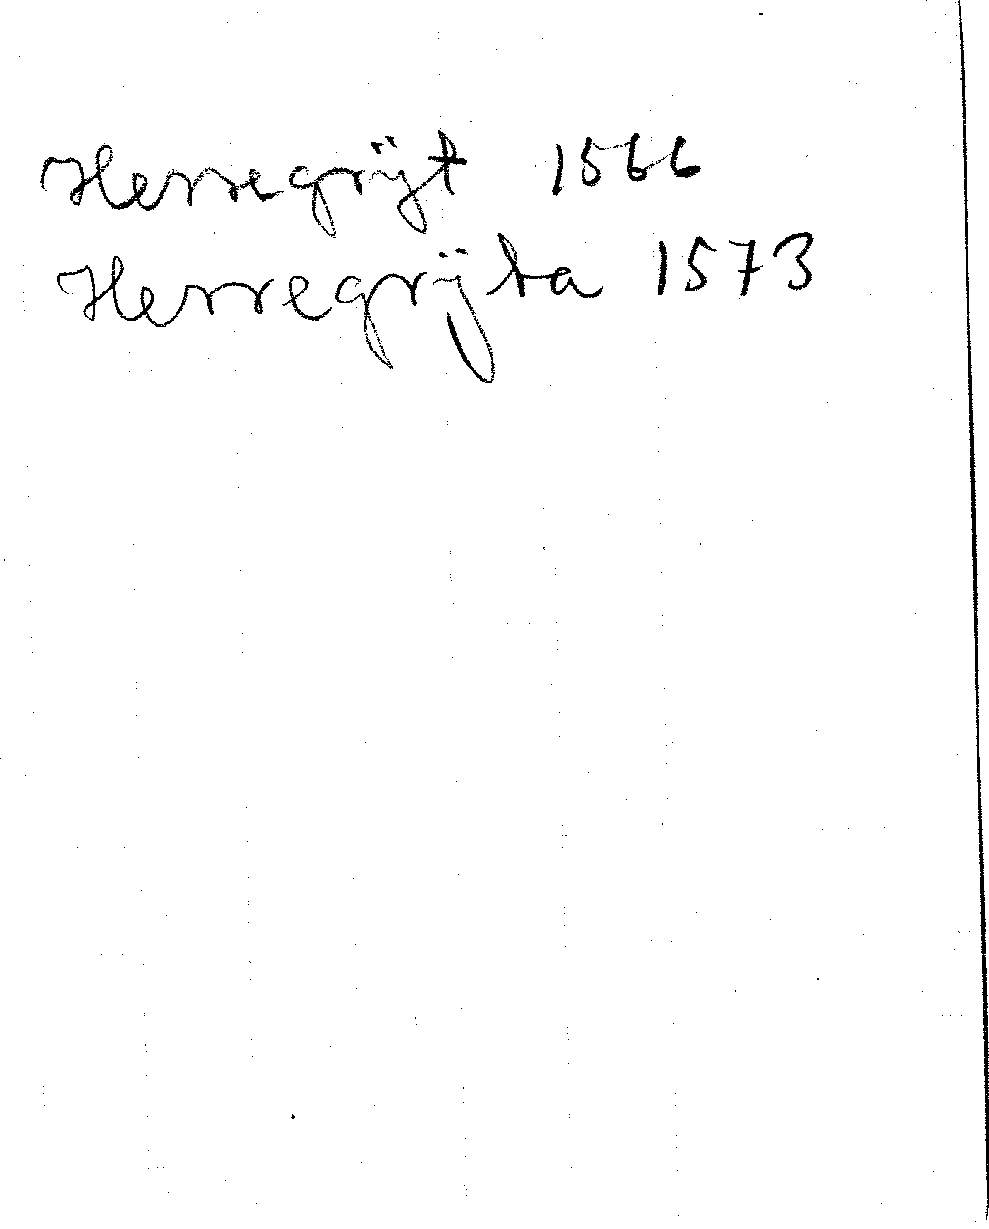 Herregrÿt 1566
Herregrÿta 1573